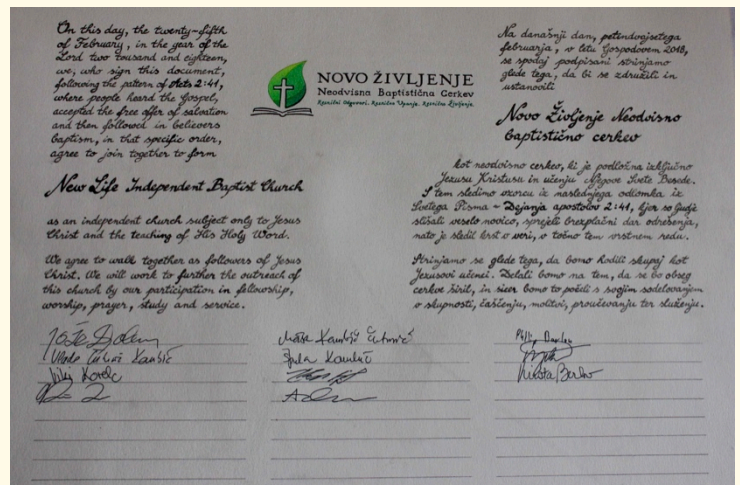 On this day, the twenty-fifth
of February, in the year of the
Lord two tousand and eighteen,
we, who sign this document,
following the pattern of Acts 2:41,
where people heard the Gospel,
accepted the free offer of salvation
and then followed in believers
baptism, in that specific order,
agree to join together to form
New Life Independent Baptist Church
as an independent church subject only to Jesus
Christ and the teaching of His Holy Word.
We agree to walk together as followers of Jesus
Christ. We will work to further the outreach of
this church by our participation in fellowship,
worship, prayer, study and service.
NOVO ŽIVLJENJE
Neodvisna Baptistična Cerkev
Resnični Odgovori. Resnično Upanje. Resnično Življenje.
Na današnji dan, petindvajsetega
februarja, v letu Gospodovem 2018,
se spodaj podpisani strinjamo
glede tega, da bi se združili in
ustanovili
Novo Življenje Neodvisno
baptistično cerkev
kot neodvisno cerkev, ki je podložna izključno
Jezusu Kristusu in učenju Njegove Svete Besede.
S tem sledimo vzorcu iz naslednjega odlomka iz
Svetega Pisma - Dejanja apostolov 2:41, kjer so ljudje
slišali veselo novico, sprejeli brezplačni dar odrešenja,
nato je sledil krst v veri, v točno tem vrstnem redu.
Strinjamo se glede tega, da bomo hodili skupaj kot
Jezusovi učenci. Delali bomo na tem, da se bo obseg
cerkve širil, in sicer bomo to počeli s svojim sodelovanjem
v skupnosti, čaščenju, molitvi, proučevanju ter služenju.